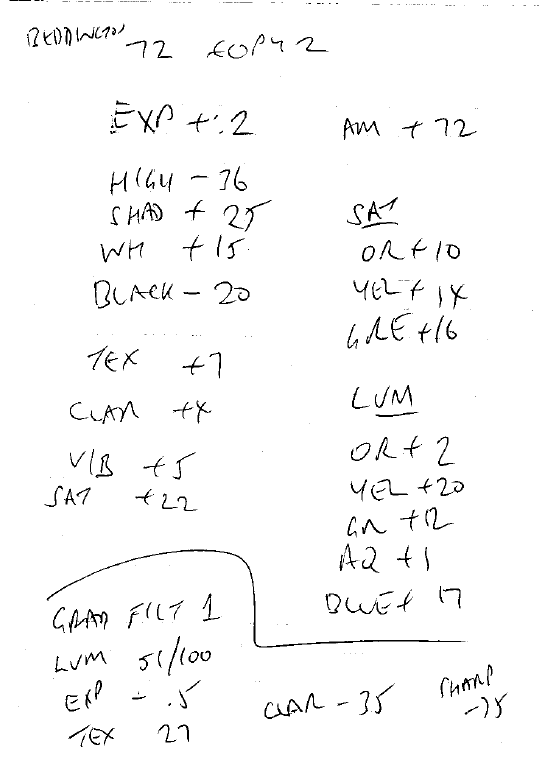 BEDDINGTON 72 COPY 2
EXP +.2
HIGH - 36
SHAD + 25
WH +15
BLACK - 20
TEX +7
CLAR +4
VIB +5
SAT +22
AM + 72
SAT
OR +10
YEL + 14
GRE +16
LUM
OR + 2
YEL +20
GR +12
AQ +1
BLUE + 17
GRAD FILT 1
LUM 51/100
EXP - .5
TEX 27
CLAR - 35
SHARP
-75